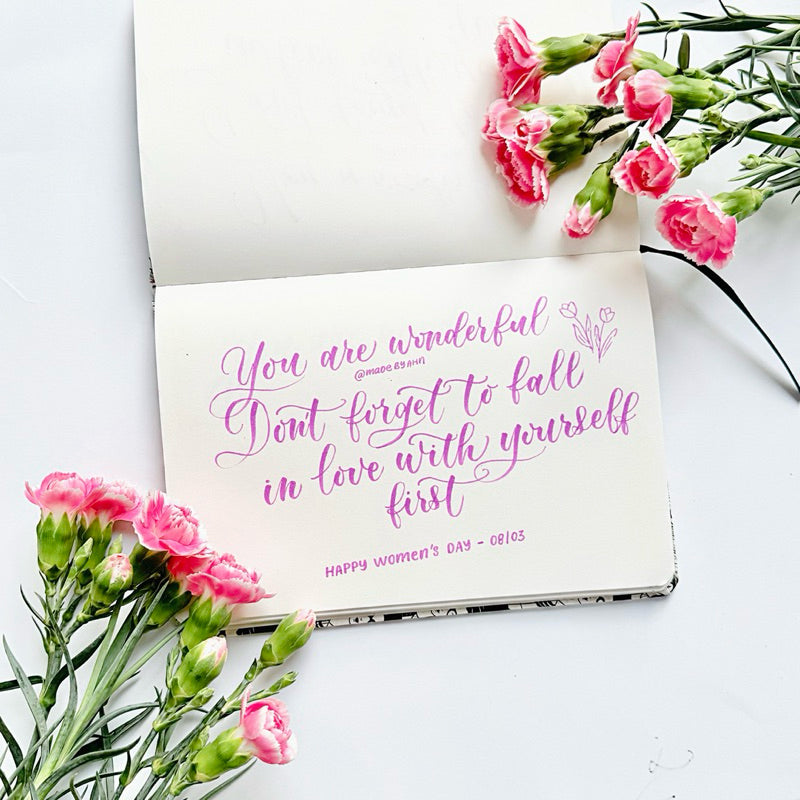 You are wonderful
@madeByAHn
Don't forget to fall
in love with yourself
first
HAPPY women's DAY - 08/03